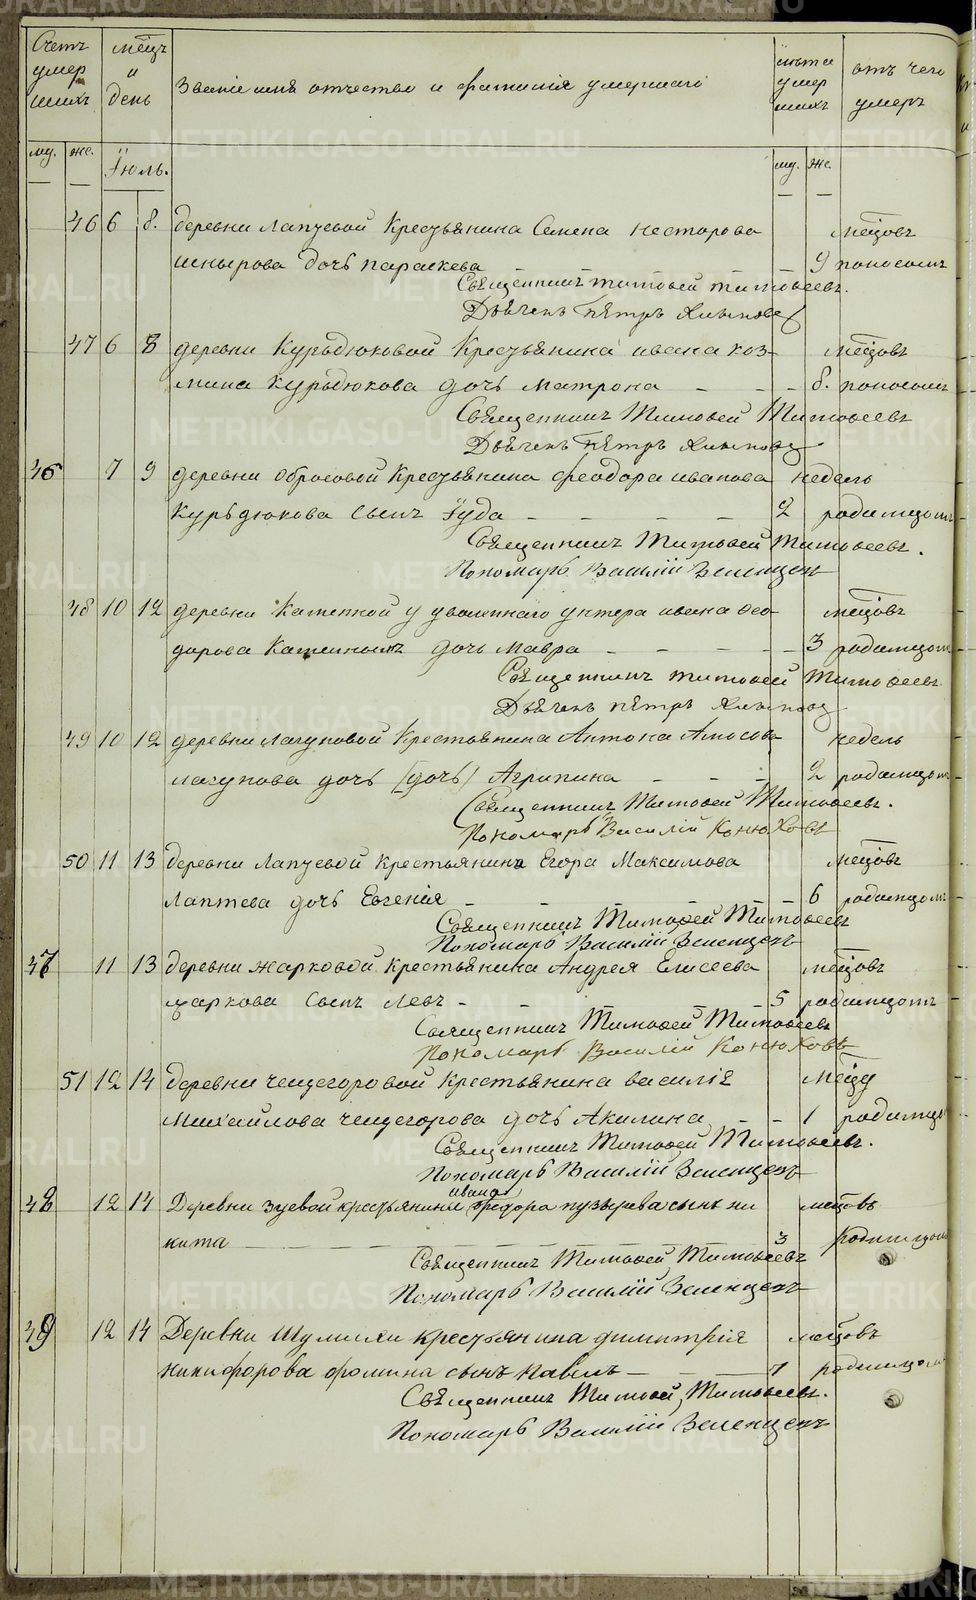 Счетъ умер шихъ
мѣсцъ и день
Званіе имя отчество и фамилія умершаго
лѣта умер шихъ
отъ чего умеръ
му. же. Іюль. му. же.
46 6 8. деревни Лаптевой Крестьянина Семена Несторова мѣсцовъ
дочь Параскева 9 поносомъ
Священникъ Тимофей Тимофеевъ.
Дьячекъ Пѣтръ Хлыновъ
47 6 8 деревни Курьдюковой Крестьянина ивана коз- мѣсцовъ
мина Курьдюкова дочь Матрона 8. поносомъ
Священникъ Тимофей Тимофеевъ
Дьячекъ Пѣтръ Хлыновъ
46 7 9 деревни Обросовой Крестьянина феодора иванова недель
Курьдюкова сынъ Іуда 2 родимцомъ
Священникъ Тимофей Тимофеевъ.
Пономарь Василій Зеленцовъ
48 10 12 деревни Каменной у уволеннаго унтера ивана фео- мѣсцовъ
дорова Каменныхъ дочь Мавра 3 родимцомъ
Священникъ Тимофей Тимофеевъ
Дьячекъ Пѣтръ Хлыновъ
49 10 12 деревни Лагуновой Крестьянина Антона Амосова недель
Лагунова дочь (дочь) Агрипина 2 родимцомъ
Священникъ Тимофей Тимофеевъ.
Пономарь Василій Конюховъ
50 11 13 деревни Лаптевой Крестьянина Егора Максимова мѣсцовъ
Лаптева дочь Евгенія 6 родимцомъ
Священникъ Тимофей Тимофеевъ
Пономарь Василій Зеленцовъ
47 11 13 деревни Жарковой Крестьянина Андрея Елисеева мѣсцовъ
Жаркова сынъ Левъ 5 родимцомъ
Священникъ Тимофей Тимофеевъ
Пономарь Василій Конюховъ
51 12 14 деревни Чещегоровой Крестьянина василія мѣсцъ
Михайлова Чещегорова дочь Акилина 1 родимцо
Священникъ Тимофей Тимофеевъ.
Пономарь Василій Зеленцовъ
ивана
48 12 14 Деревни Зуевой крестьянина федора пузырева сынъ ни мѣсцовъ
кита 3 родимцом
Священникъ Тимофей Тимофеевъ
Пономарь Василій Зеленцовъ
49 12 14 Деревни Шумихи крестьянина димитрія мѣсцовъ
никифорова фомина сынъ павелъ 7 родимцом
Священникъ Тимофей Тимофеевъ.
Пономарь Василій Зеленцовъ
METRIKI.GASO-URAL.RU